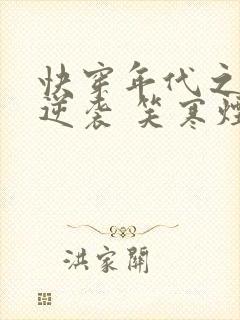 快穿年代之
逆袭 笑寒烟
洪家關